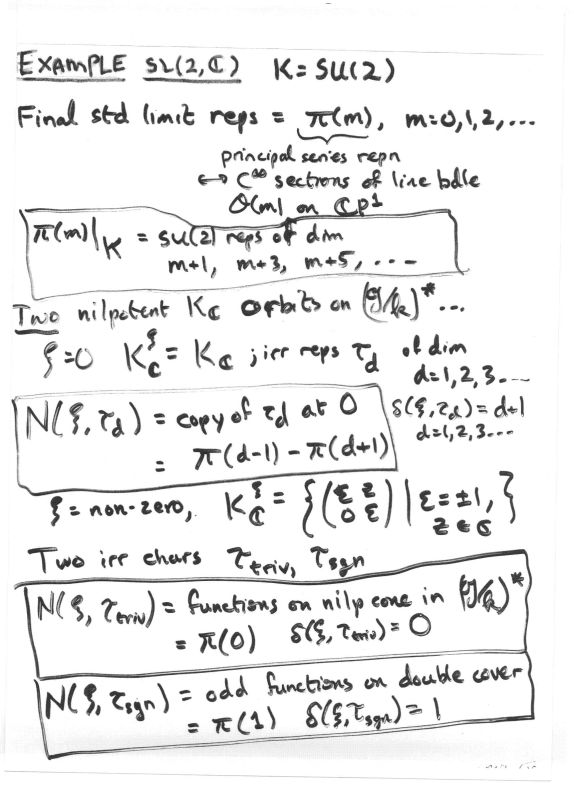 EXAMPLE SL(2,ℂ) K=SU(2)
Final std limit reps = π(m), m=0,1,2,...
principal series repn
↔ C^∞ sections of line bdle
O(m) on ℂP¹
π(m)|_K = SU(2) reps of dim
m+1, m+3, m+5, ...
Two nilpotent K_ℂ orbits on (g/k)* ...
ξ=0 K_ℂ^ξ = K_ℂ ; irr reps τ_d of dim
d=1,2,3...
N(ξ,τ_d) = copy of τ_d at 0 δ(ξ,τ_d) = d+1
d=1,2,3...
= π(d-1) - π(d+1)
ξ = non-zero, K_ℂ^ξ = {(ε z
0 ε) | ε=±1, z∈ℂ}
Two irr chars τ_triv, τ_sgn
N(ξ,τ_triv) = functions on nilp cone in (g/k)*
= π(0) δ(ξ,τ_triv) = 0
N(ξ,τ_sgn) = odd functions on double cover
= π(1) δ(ξ,τ_sgn) = 1